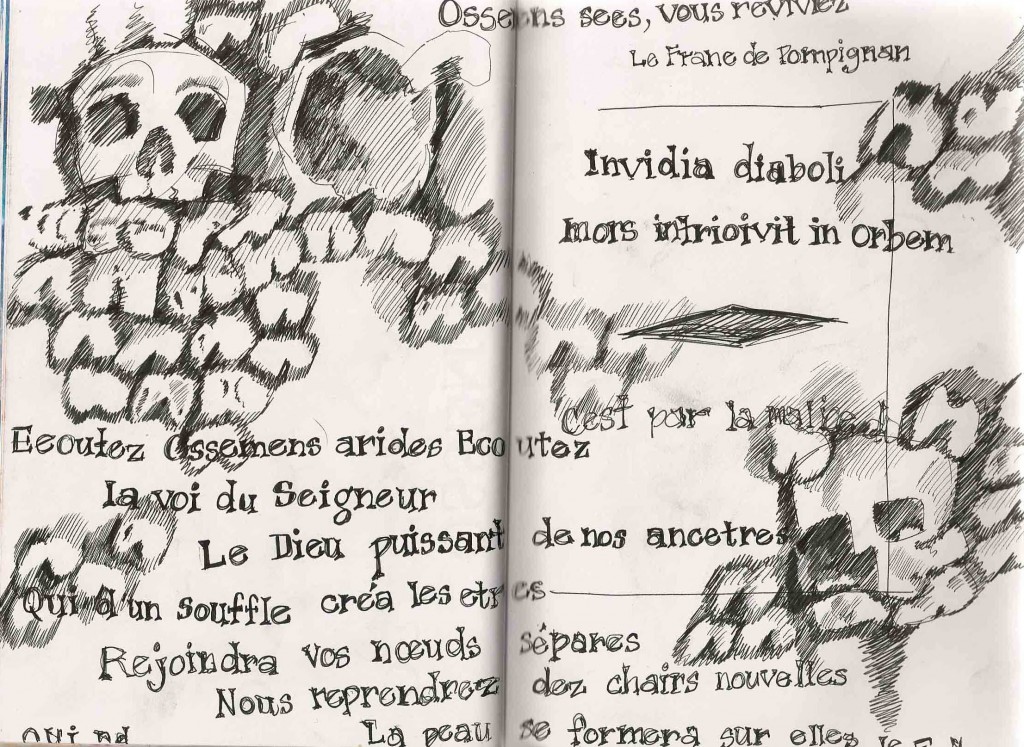 Ossements secs, vous revivrez
Le Franc de Pompignan
Invidia diaboli
mors introivit in orbem
C'est par la malice
Ecoutez Ossemens arides Ecoutez
la voi du Seigneur
Le Dieu puissant de nos ancetres
Qui d'un souffle créa les etres
Rejoindra vos nœuds sépares
Nous reprendrez dez chairs nouvelles
La peau se formera sur elles